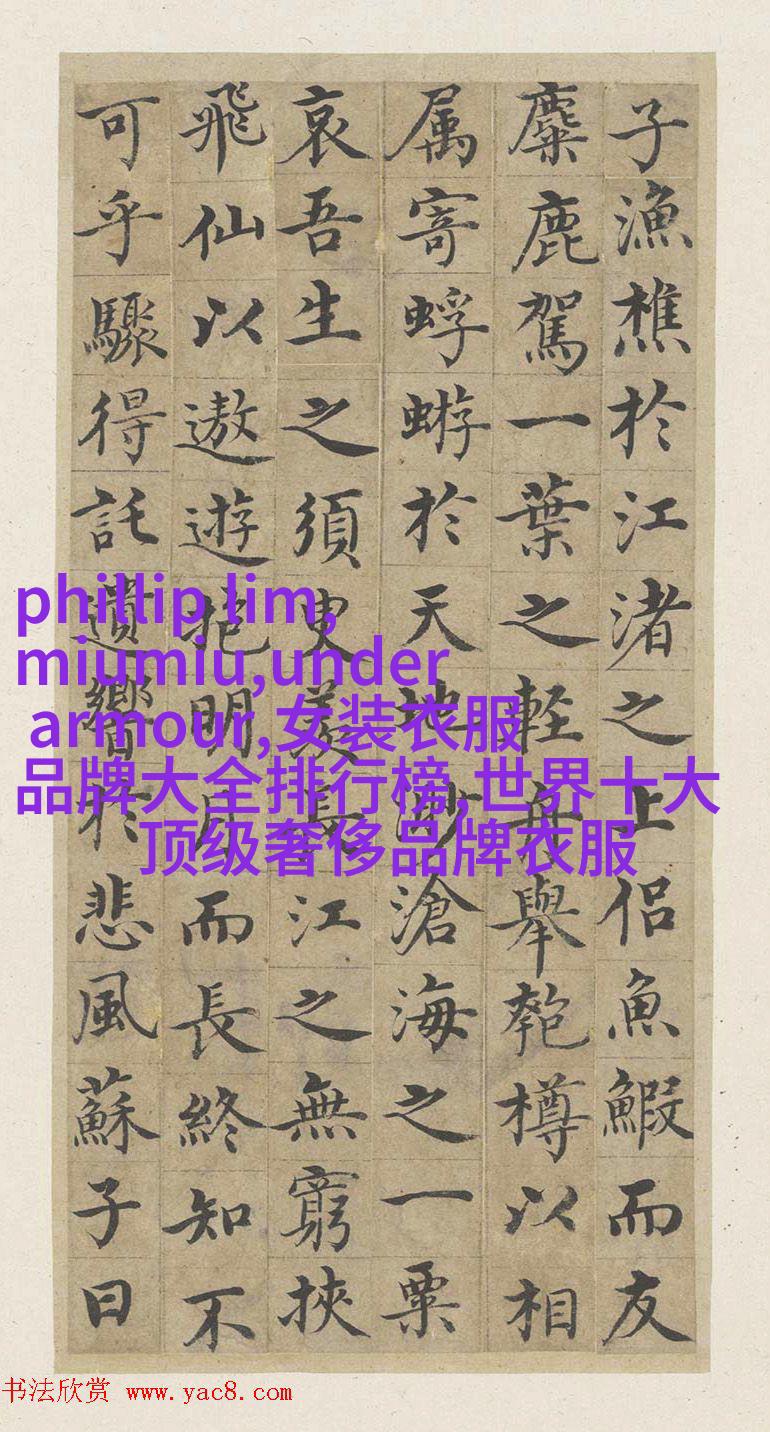 子漁樵於江渚之上侶魚鰕而友
麋鹿駕一葉之輕舟舉匏樽以相
属寄蜉蝣於天地渺滄海之一粟
哀吾生之須臾羨長江之無窮挾
飛仙以遨遊抱明月而長終知不
可乎驟得託遺響於悲風蘇子曰
phillip lim,
miumiu,under
armour,女装衣服
品牌大全排行榜,世界十大
顶级奢侈品牌衣服
书法欣赏 www.yac8.com